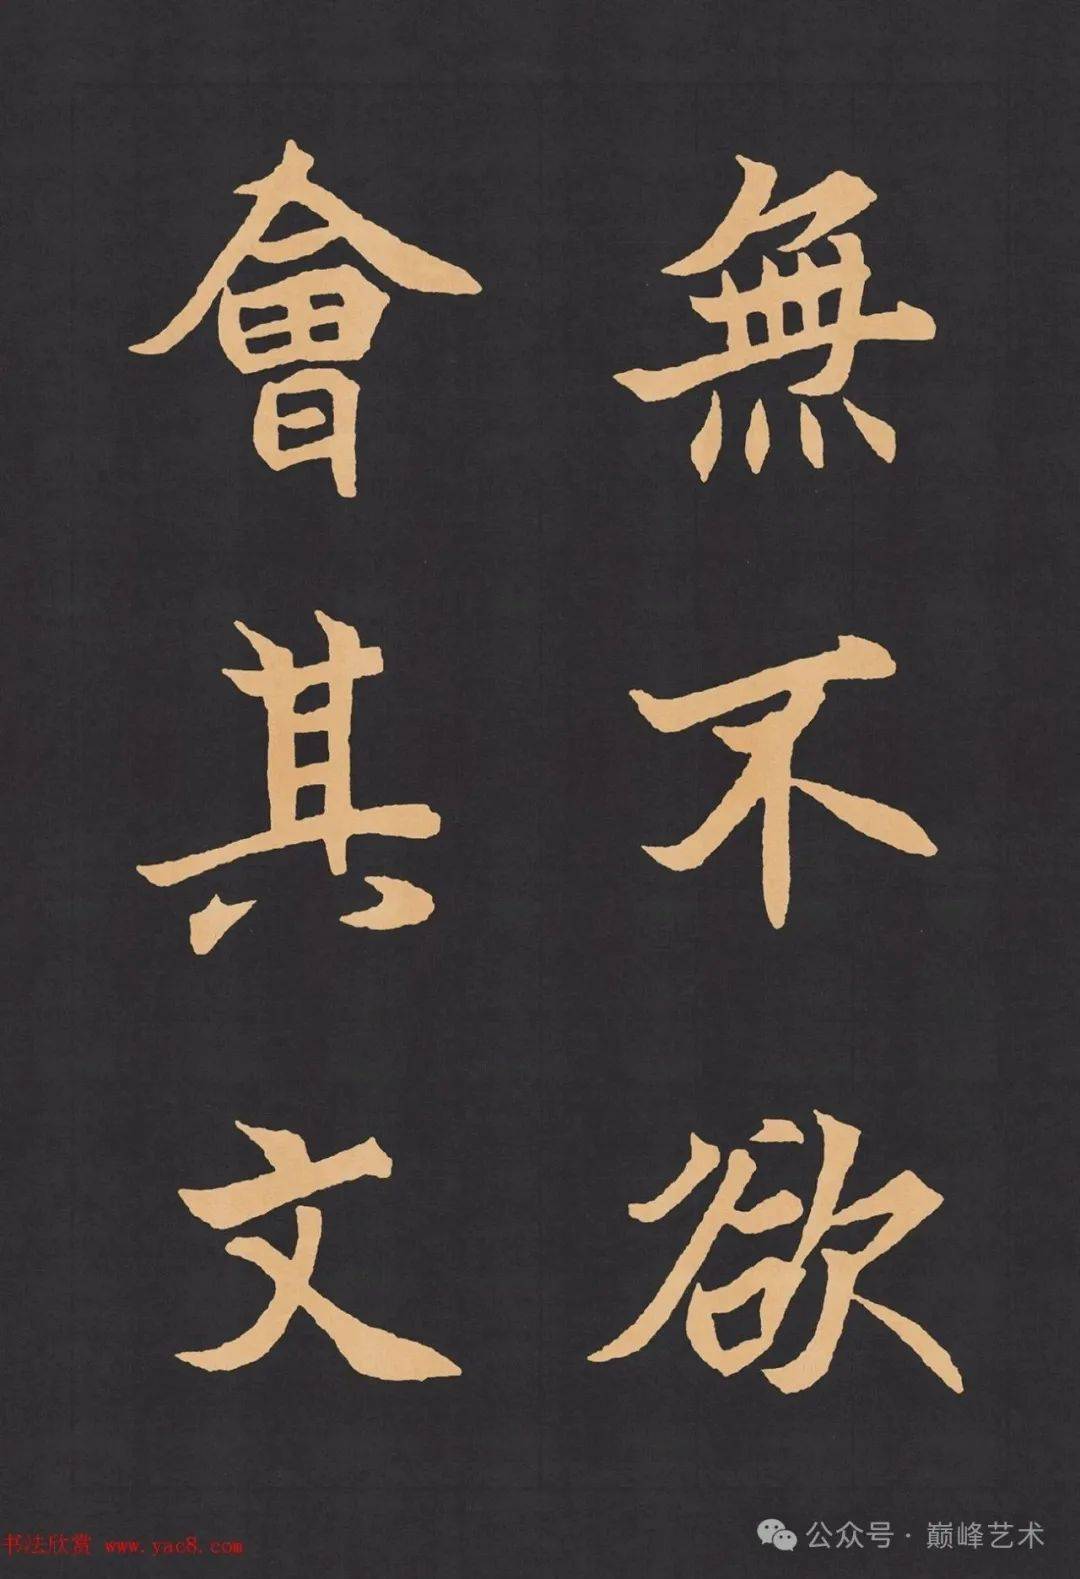 無不欲
會其文
书法欣赏 www.yac8.com
公众号·巅峰艺术